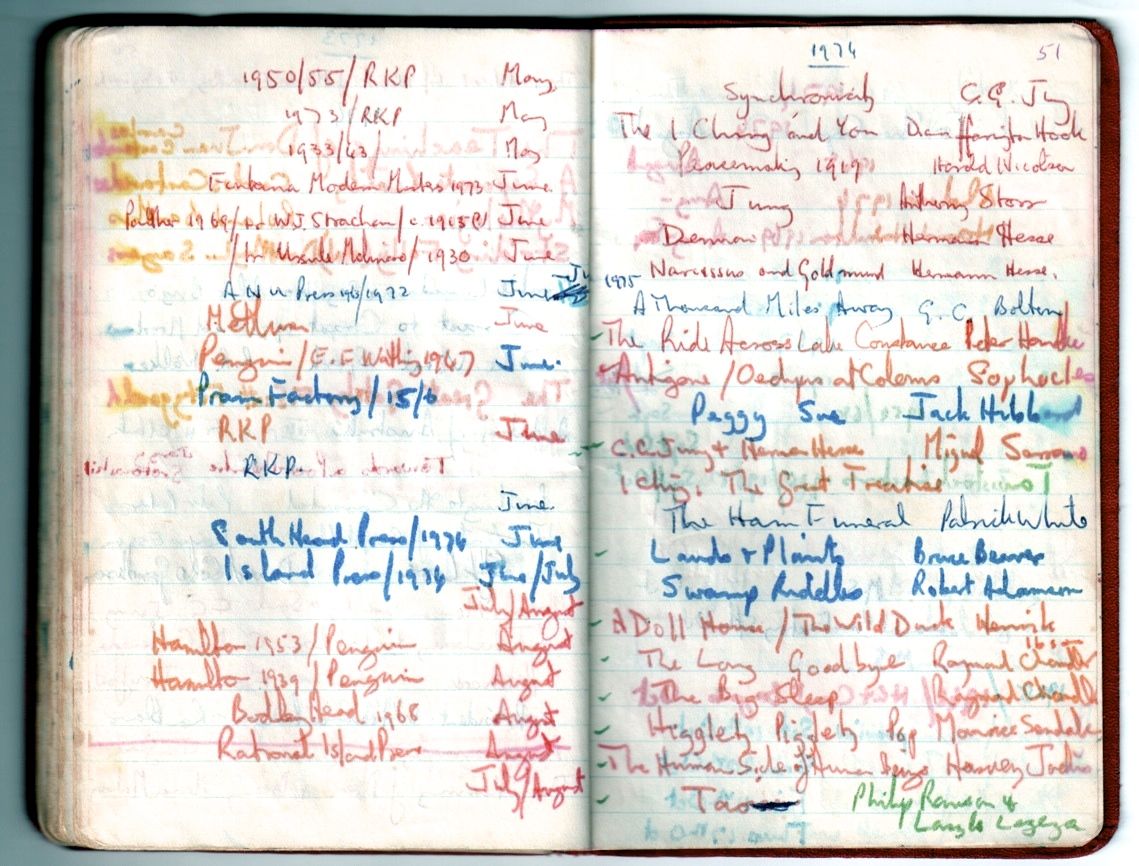 1950/55/RKP May
1973/RKP May
1933/43 May
Fontana Modern Masters 1973 June
Panther 1969/tr. W.J. Strachan/c. 1965 June
/tr Ursule Molinaro/1930 June
ANU Press /1972 June
Methuen June
Penguin/E.F. Watling 1947 June.
Pram Factory/15/6
RKP June
RKP.
June
South Head Press/1974 June
Island Press/1974 June/July
July/August
Hamilton 1953/Penguin August
Hamilton 1939/Penguin August
Bodley Head 1968 August
Rational Island Press August
July/August
1974 51
Synchronicity C.G. Jung
The I Ching and You Diana ffarington Hook
Peacemaking 1919 Harold Nicolson
Jung Anthony Storr
Demian Hermann Hesse
Narcissus and Goldmund Hermann Hesse.
1975
A Thousand Miles Away G.C. Bolton
The Ride Across Lake Constance Peter Handke
Antigone/Oedipus at Colonus Sophocles
Peggy Sue Jack Hibberd
C.G. Jung + Herman Hesse Miguel Serrano
I Ching, The Great Treatise
The Ham Funeral Patrick White
Lauds + Plaints Bruce Beaver
Swamp Riddles Robert Adamson
A Doll House/The Wild Duck Henrik Ibsen
The Long Goodbye Raymond Chandler
The Big Sleep Raymond Chandler
Higglety Pigglety Pop Maurice Sendak
The Human Side of Human Beings Harvey Jackins
Tao Philip Rawson +
Laszlo Legeza